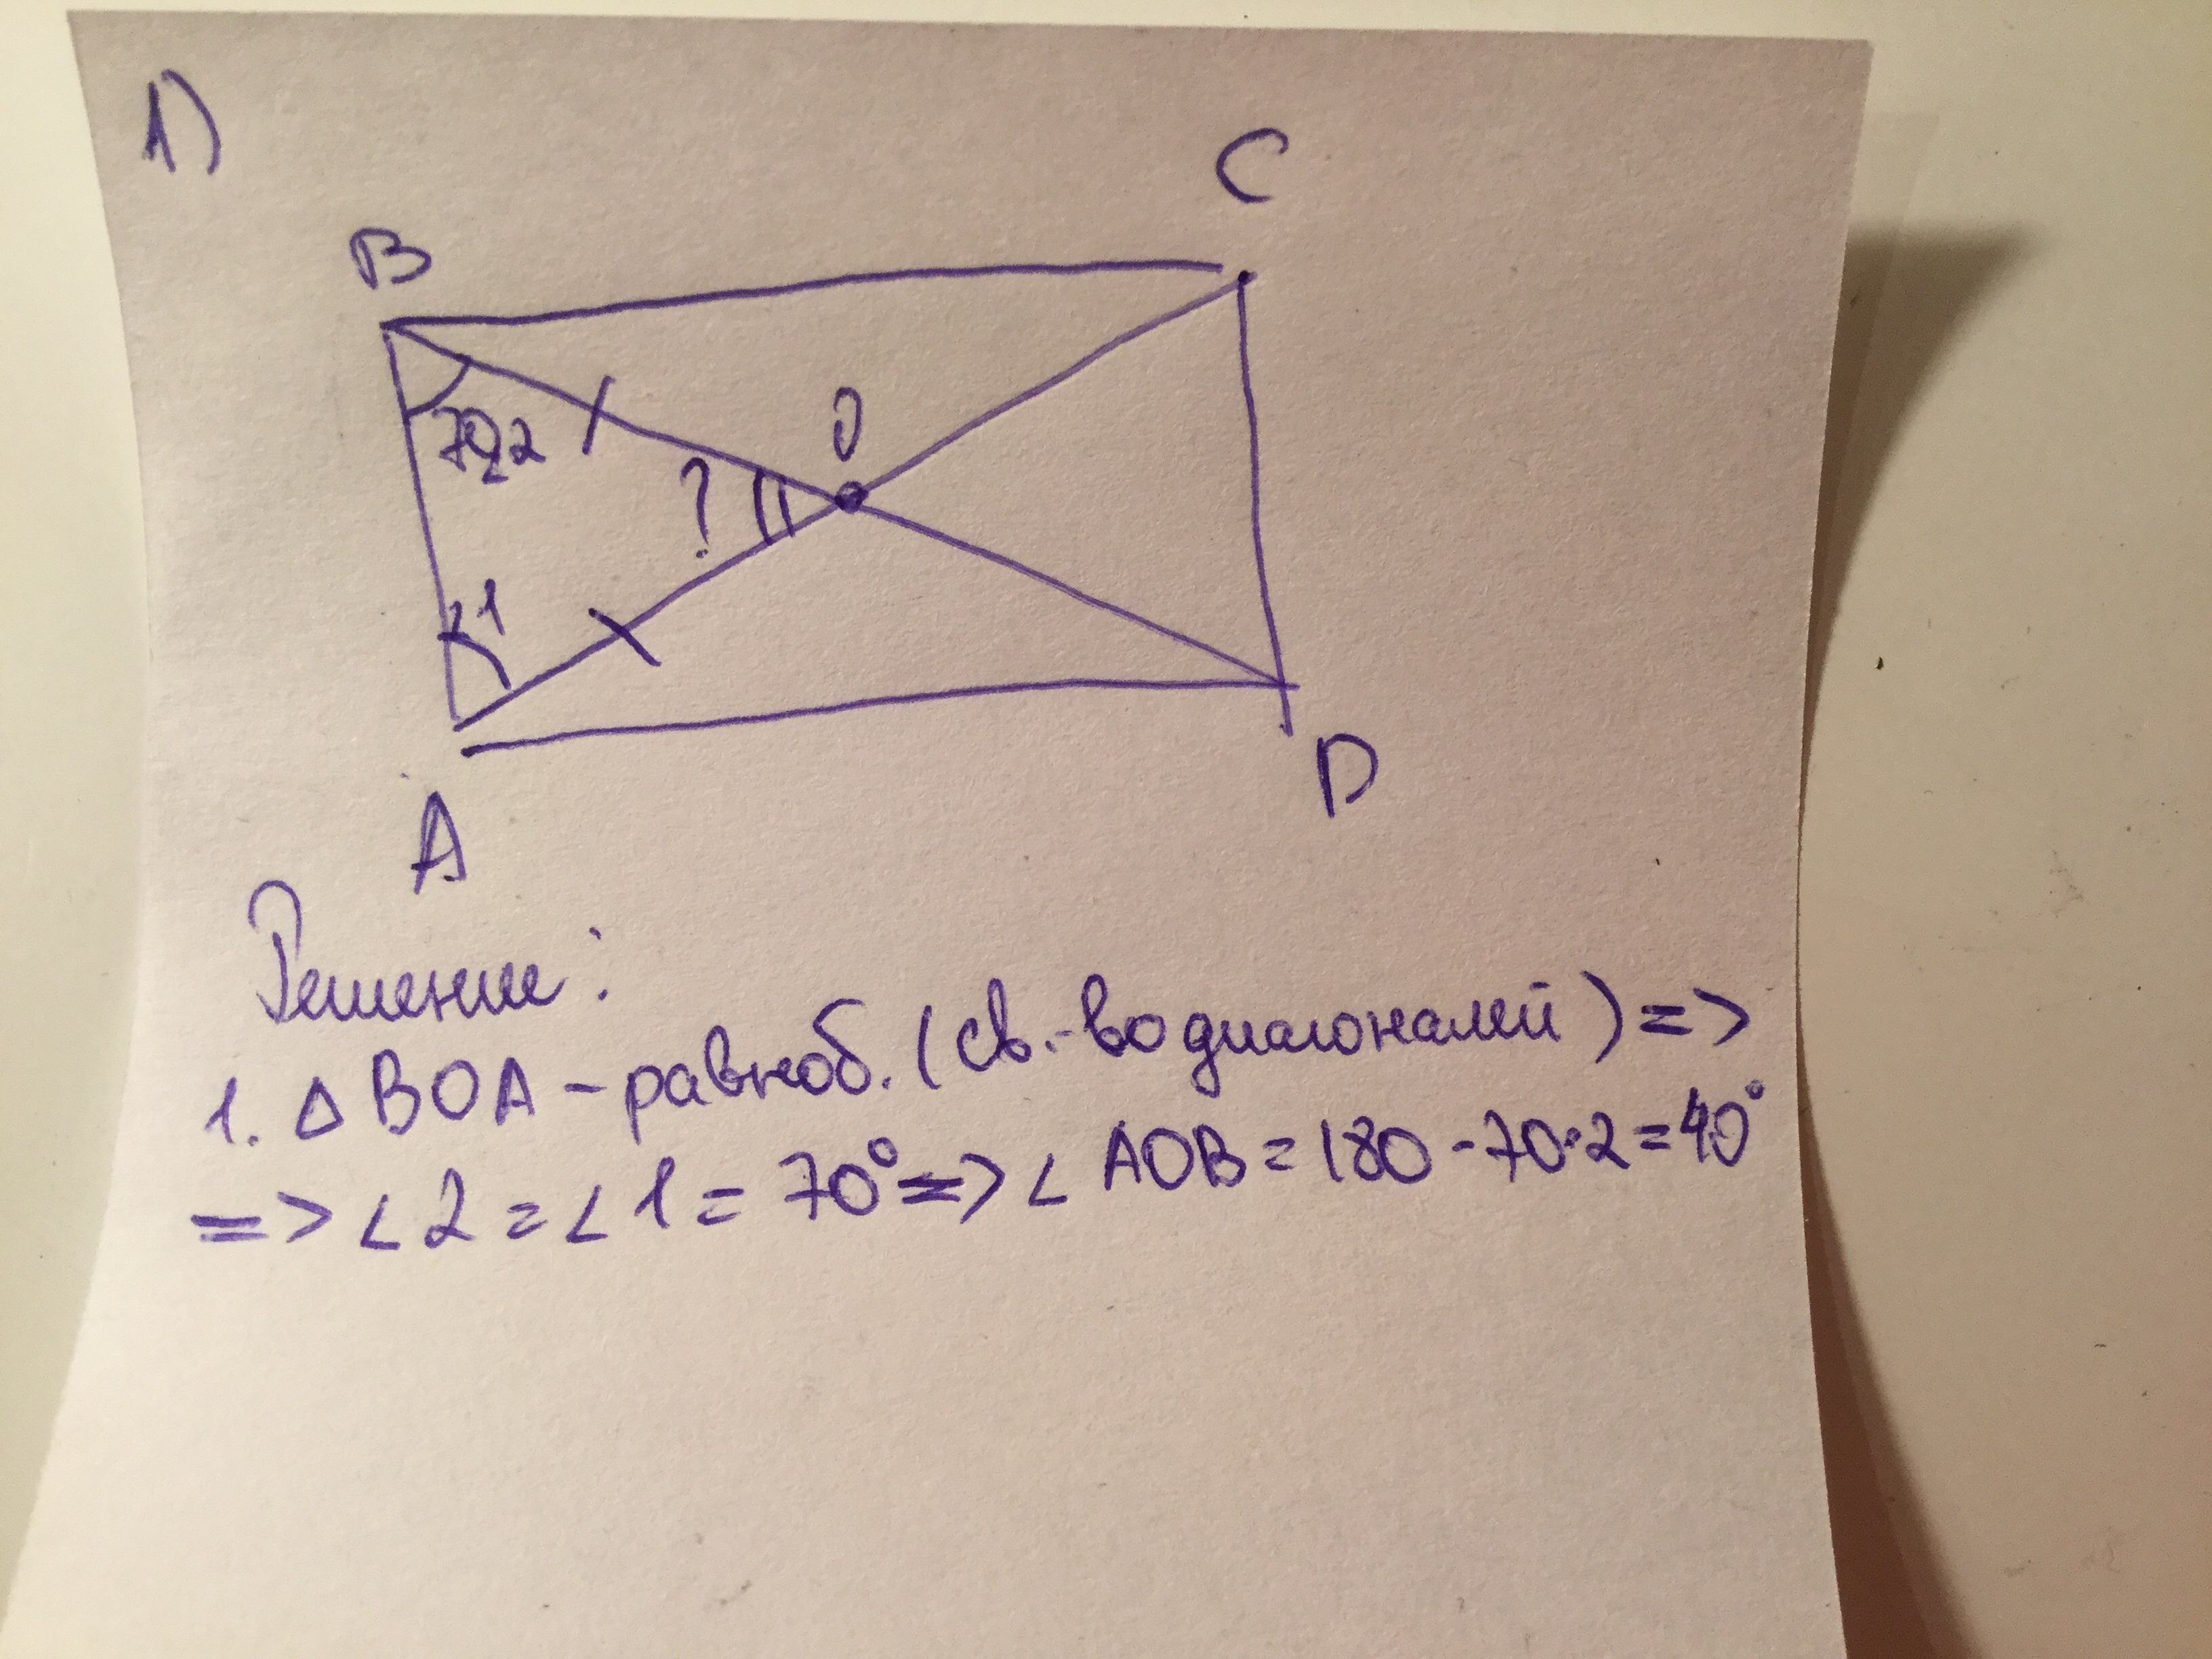 1)
C
B
O
70 2
?
1
D
A
Решение:
1. Δ BOA – равноб. (св.-во диагоналей) =>
=> ∠2 = ∠1 = 70° => ∠AOB = 180 - 70·2 = 40°